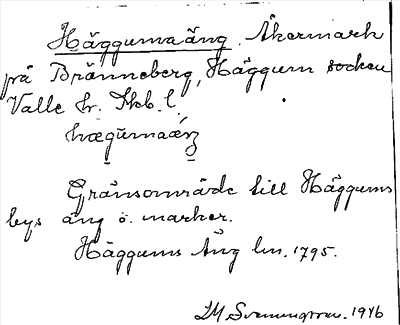 Häggumaäng. Åkermark
på Bränneberg, Häggum socken
Valle hr. Skb. l.
hægumaæŋ
Gränsområde till Häggums
bys äng o. marker.
Häggums Äng lm. 1795.
1946